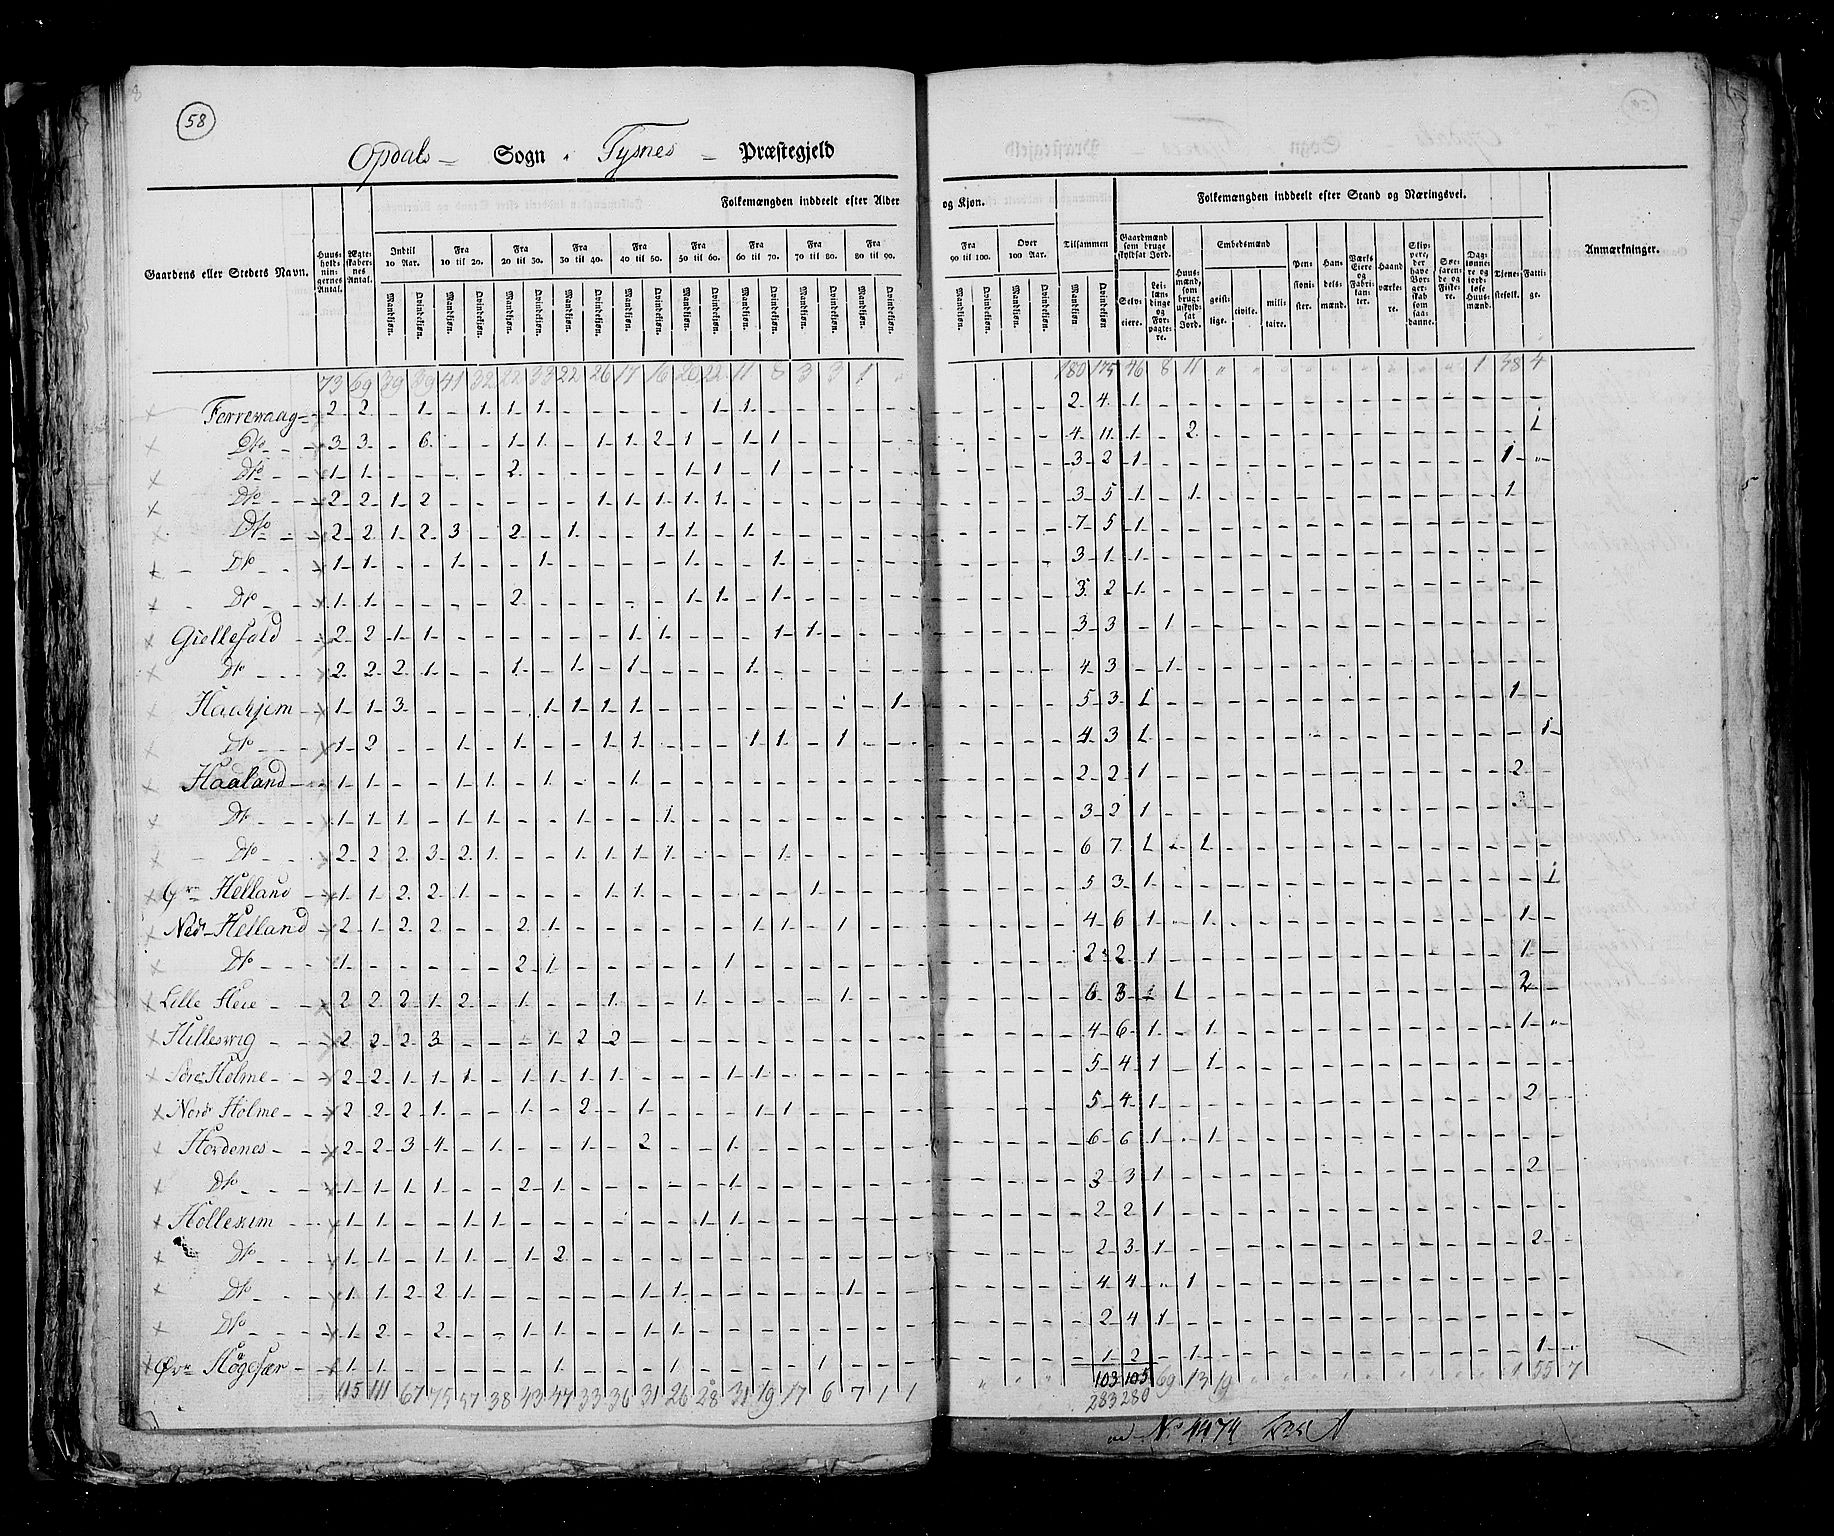 58
Opdals Sogn Tysnes Præstegjeld
Folkemængden inddeelt efter Alder og Kjøn. Tilsammen Folkemængden inddeelt efter Stand og Næringsvei.
Gaardens eller Stedets Navn. Huusholdningernes Antal. Ægteskabernes Antal. Indtil 10 Aar. Fra 10 til 20. Fra 20 til 30. Fra 30 til 40. Fra 40 til 50. Fra 50 til 60. Fra 60 til 70. Fra 70 til 80. Fra 80 til 90. Fra 90 til 100. Over 100 Aar. Anmærkninger.
Mandkjøn. Qvindekjøn. Mandkjøn. Qvindekjøn. Mandkjøn. Qvindekjøn. Mandkjøn. Qvindekjøn. Mandkjøn. Qvindekjøn. Mandkjøn. Qvindekjøn. Mandkjøn. Qvindekjøn. Mandkjøn. Qvindekjøn. Mandkjøn. Qvindekjøn. Mandkjøn. Qvindekjøn. Mandkjøn. Qvindekjøn. Mandkjøn. Qvindekjøn.
Gaardmænd som bruge skyldsat Jord. Selveiere. Leilændinge og Forpagtere. Huusmænd, som bruge uskyldsat Jord. Embedsmænd geistlige. civile. militaire. Pensionister. Handelsmænd. Værks Eiere og Fabrikanter. Haandværkere. Skippere, der have Borgerskab som saadanne. Søefarende og Fiskere. Daglønnere og jordløse Huusmænd. Tjenestefolk. Fattige.
73 69 39 39 41 32 22 33 22 26 17 16 20 22 11 8 3 3 1 180 175 46 8 11 1 38 4
2 2 1 1 1 1 1 1 2 4 1
Do 3 3 6 1 1 1 1 2 1 1 1 4 11 1 2 1
Do 1 1 2 1 1 1 3 2 1 1
Do 2 2 1 2 1 1 1 1 1 3 5 1 1 1
Do 2 2 1 2 3 2 1 1 1 1 7 5 1
Do 1 1 1 1 1 1 3 1 1
Do 1 1 2 1 1 1 3 2 1
Giellefald 2 2 1 1 1 1 1 1 3 3 1
Do 2 2 2 1 1 1 1 1 4 3 1
1 1 3 1 1 1 1 1 5 3 1 1
Do 1 2 1 1 1 1 1 1 1 4 3 1 1
Haaland 1 1 1 1 1 1 2 2 1 2
Do 1 1 1 1 1 1 1 3 2 1
Do 2 2 2 3 2 1 1 1 1 1 1 6 7 1 1 1
Helland 1 1 2 2 1 1 1 1 5 3 1 1
Nedr Helland 2 1 2 2 2 1 1 1 1 4 6 1 1 1
Do 1 2 1 1 2 2 1 1
Lille Heie 2 2 2 1 2 1 1 1 1 6 3 1 1 2
Hilleswig 2 2 2 3 1 2 2 4 6 1 1 1
Søre Holme 2 2 1 1 1 1 1 1 1 1 1 5 4 1 1
Nordr Holme 2 2 2 1 1 2 1 1 1 5 4 1 2
Hordenes 2 2 3 4 1 1 2 1 6 6 1 1
Do 1 1 1 1 2 1 1 3 3 1 2
Hollekim 1 1 1 1 1 1 2 2 1
Do 1 1 1 1 1 2 2 3 1 2
Do 1 1 2 2 1 1 1 1 4 4 1
Do 1 2 2 1 1 1 1 2 4 1
Øvre 1 1 1 1 1 1 2 1 1
115 111 67 75 57 38 43 47 33 36 31 26 28 31 19 17 6 7 1 1 103 105 69 13 19 1 55 7
283 280